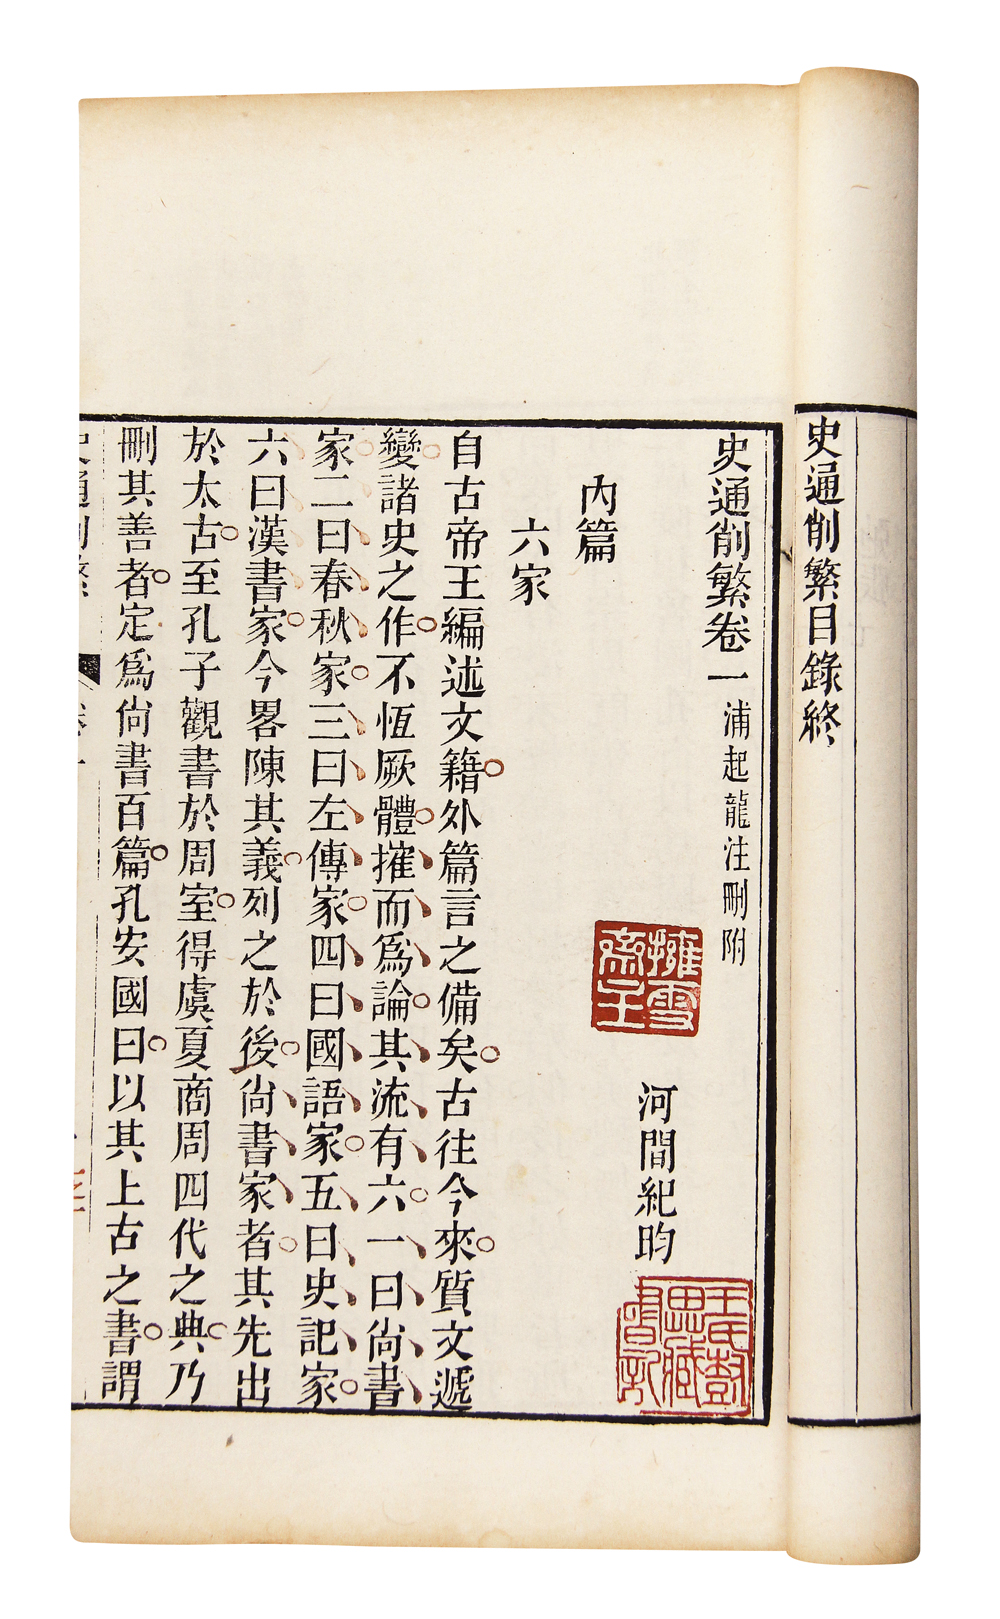 史通削繁目錄終
史通削繁卷一 浦起龍注刪附
河間紀昀
擁雪齋主
內篇
六家
自古帝王編述文籍外篇言之備矣古往今來質文遞
變諸史之作不恆厥體搉而爲論其流有六一曰尚書
家二曰春秋家三曰左傳家四曰國語家五曰史記家
六曰漢書家今畧陳其義列之於後尚書家者其先出
於太古至孔子觀書於周室得虞夏商周四代之典乃
刪其善者定爲尚書百篇孔安國曰以其上古之書謂
史通削繁 卷一